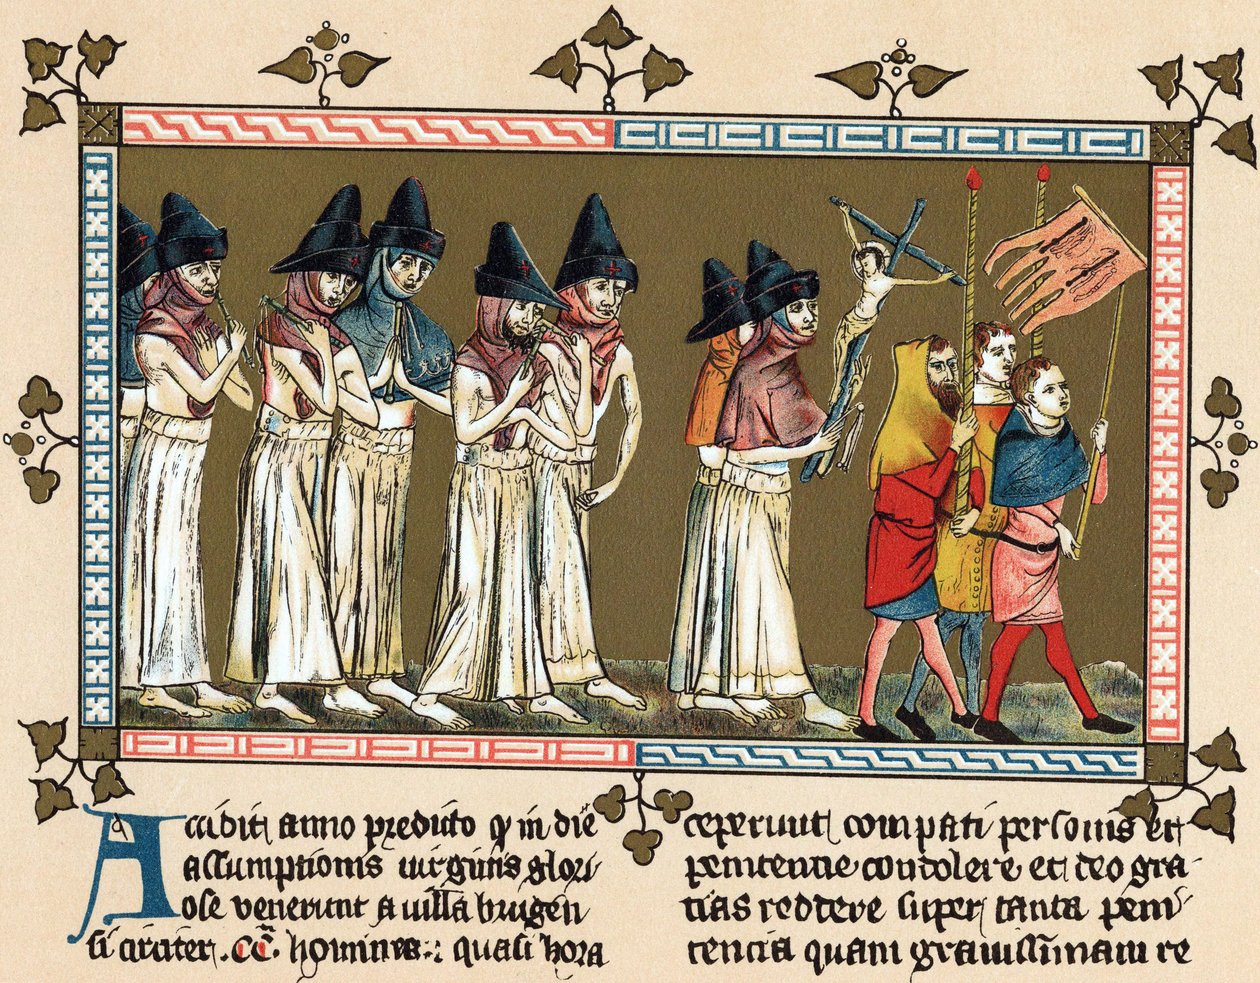 Accidit anno predicto q̄ in die
assumptionis virginis glori-
ose venerunt a villa brugen
si circiter .CC. homines : quasi hora
ceperunt compati personis et
penitencie condolere et deo gra-
tias reddere super tanta peni-
tencia quam gravissimam re